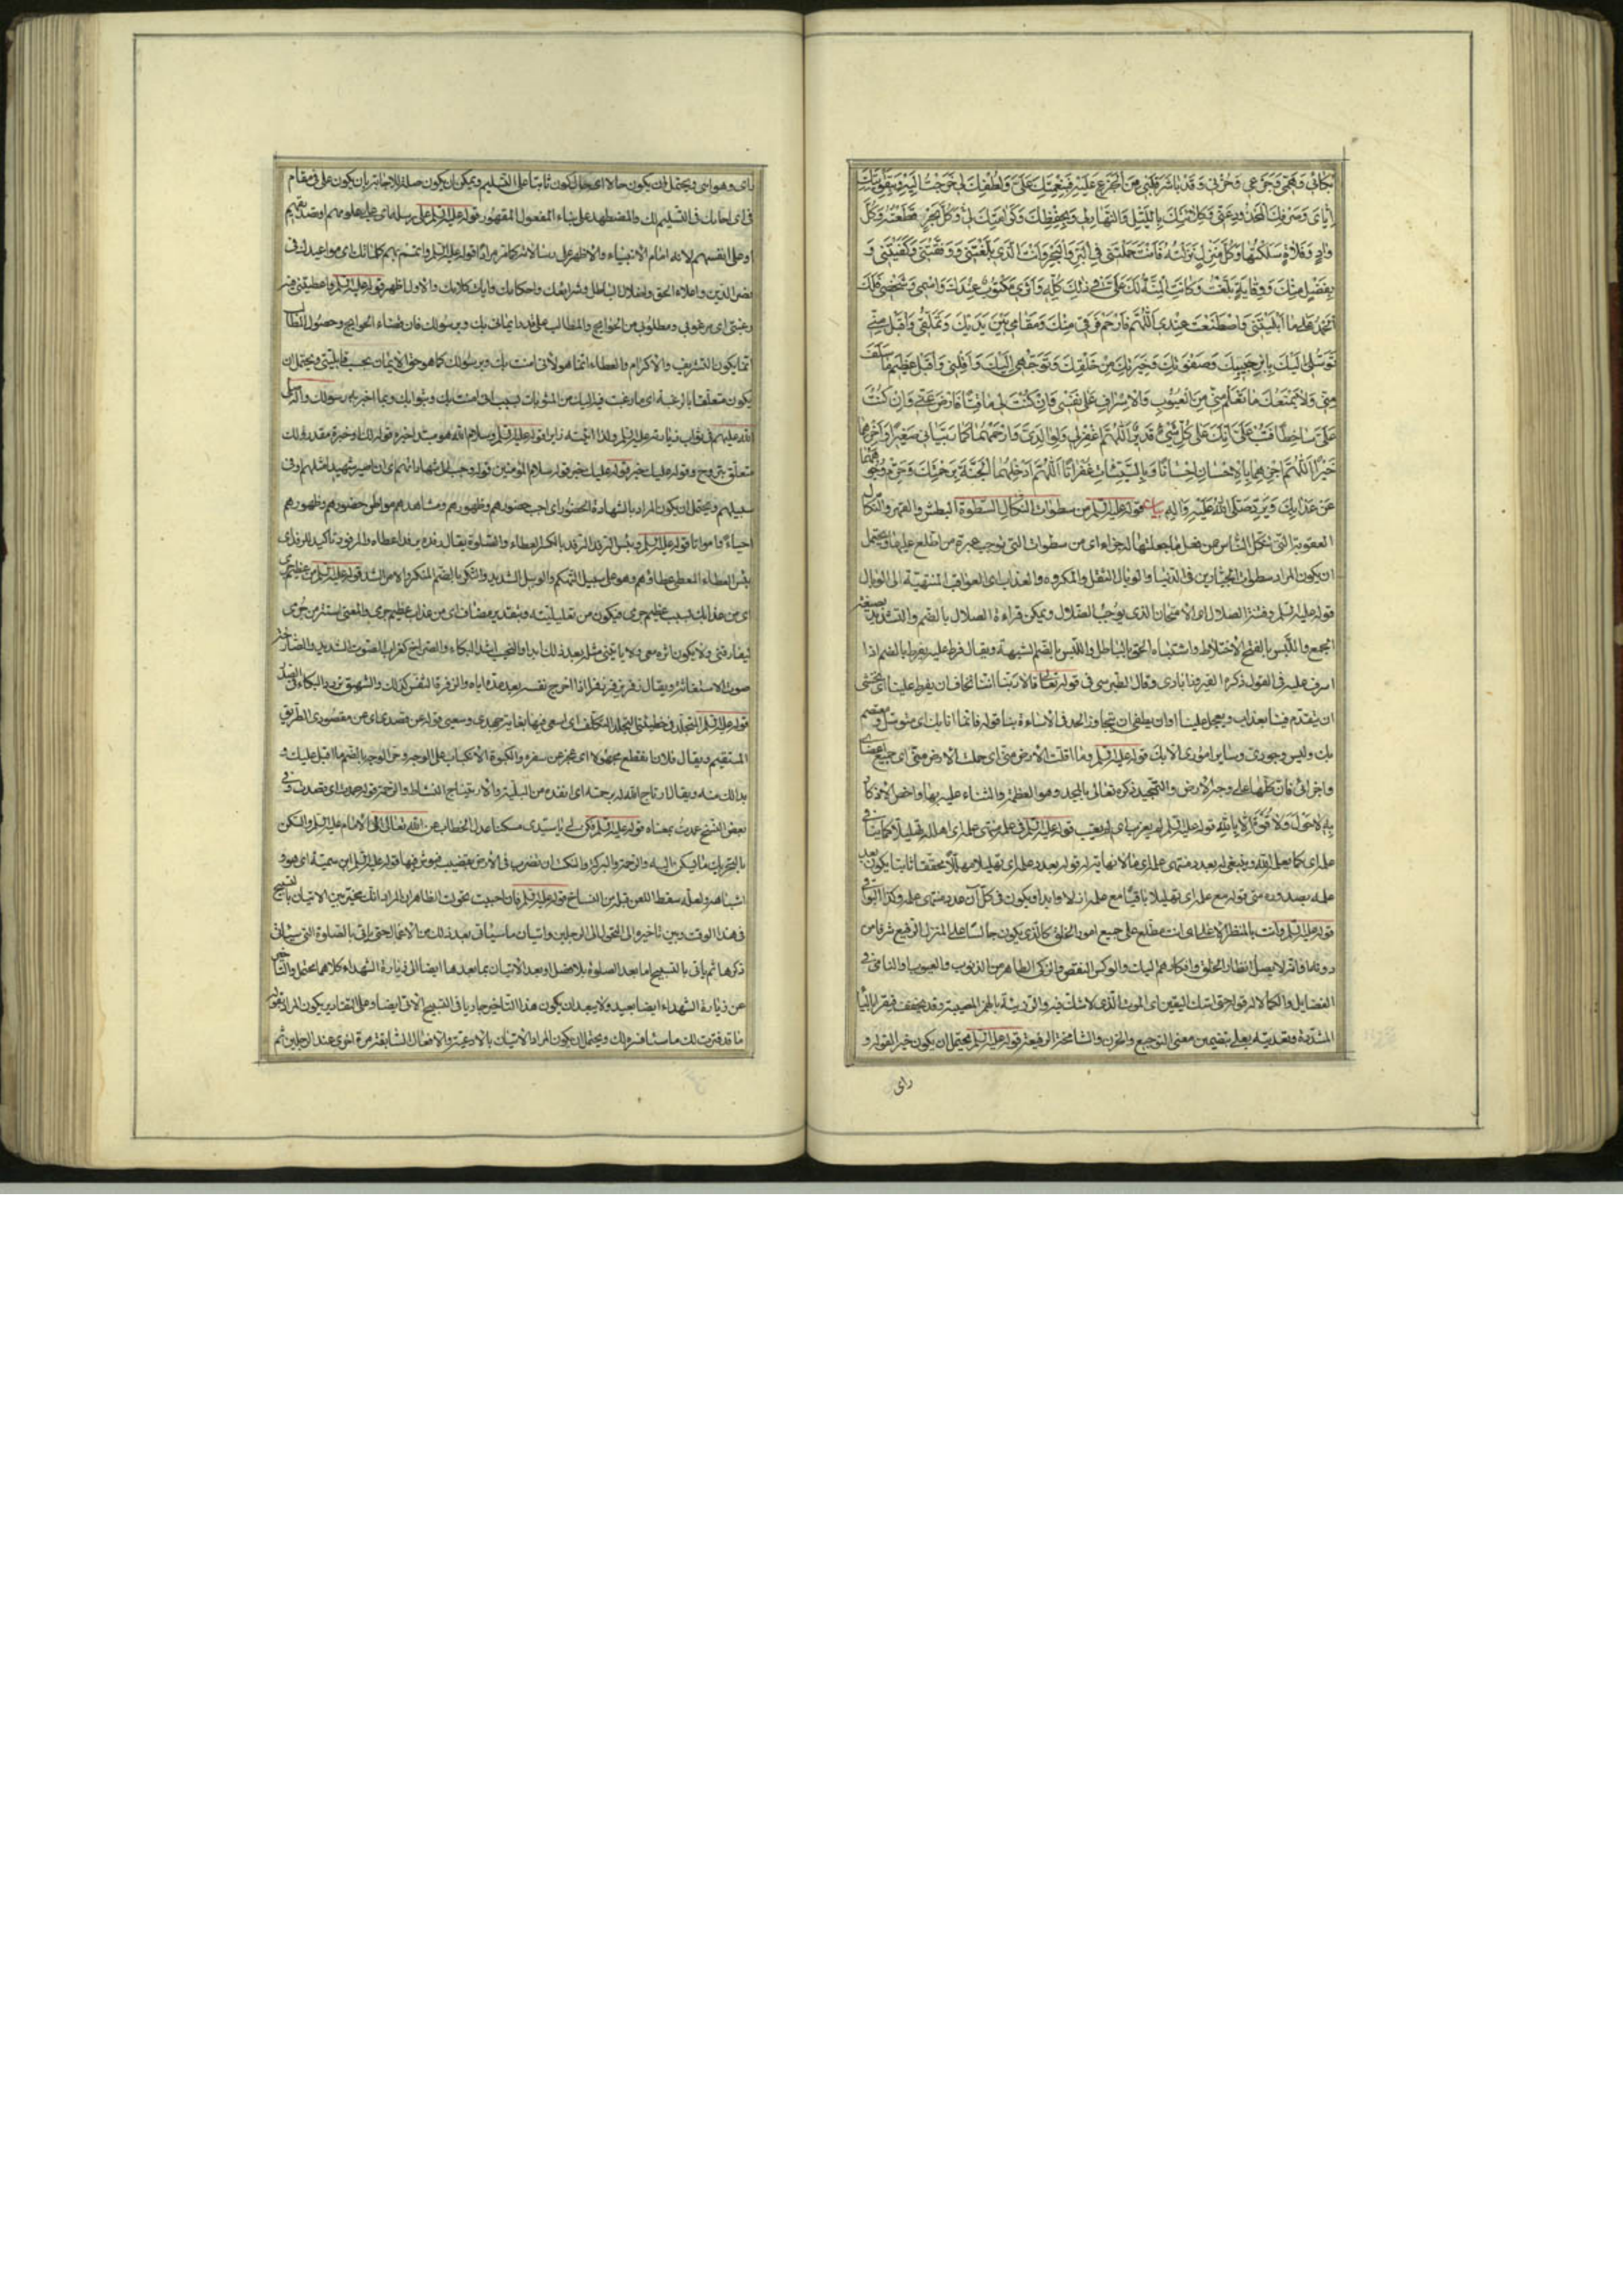 بكائي وهمي وجزعي وحزني وقد باشر قلبي من الجزع عليه فبنعمتك علي ولطفك لي خرجت اليه بتقويتك
اياي وصرفك المحذور عني وكلائتك بالليل والنهار لي وبحفظك وكرامتك لي وكل بحر قطعته وكل
واد وفلاة سلكتها وكل منزل نزلته فانت حملتني في البر والبحر وانت الذي بلغتني ووفقتني وكفيتني و
بفضل منك ووقاية بلغت وكانت المنة لك علي في ذلك كله واثري مكتوب عندك واسمي وشخصي فلك
الحمد على ما ابليتني واصطنعت عندي اللهم فارحم قربي منك ومقامي بين يديك وتملقي واقبل مني
توسلي اليك بابن حبيبك وصفوتك وخيرتك من خلقك وتوجهي اليك واقلني واقبل عظيم ما سلف
مني ولا يمنعك ما تعلم مني من العيوب والاسراف على نفسي فان كنت لي ماقتا فارض عني وان كنت
علي ساخطا فتب علي انك على كل شيء قدير اللهم اغفر لي ولوالدي وارحمهما كما ربياني صغيرا واجزهما
خيرا اللهم اجزهما بالاحسان احسانا وبالسيئات غفرانا اللهم ادخلهما الجنة برحمتك وحرم وجوههما
عن عذابك صلى الله عليه واله بيان قوله عليه السلم من سطوات النكال السطوة البطش والقهر والنكال
العقوبة التي تنكل الناس عن فعل ما جعلت له جزاء اي من سطوات التي توجب عبرة من اطلع عليها ويحتمل
ان يكون المراد سطوات الجبارين في الدنيا والوبال الثقل والمكروه والعذاب اي العواقب المنتهية الى الوبال
قوله عليه السلم وفتنة الضلال اي الامتحان الذي يوجب الضلال ويمكن قراءة الضلال بالضم والتشديد بصيغة
الجمع واللبس بالفتح الاختلاط واشتباه الحق بالباطل واللبس بالضم الشبهة ويقال فرط عليه يفرط بالضم اذا
اسرف عليه في القول ذكره الفيروزابادي وقال الطبرسي في قوله تعالى قالا ربنا اننا نخاف ان يفرط علينا اي نخشى
ان يتقدم فينا بعذاب ويعجل علينا او ان يطغى اي يتجاوز الحد في الاساءة بنا قوله فانما انا بك اي متوسل ومعتصم
بك وليس وجودي وساير اموري الا بك قوله عليه السلم وما اقلت الارض مني اي حملت الارض مني اي جميع اعضاي
واجزائي فان كلها على وجه الارض والتمجيد ذكره تعالى بالمجد وهو العظمة والثناء عليه بها
به لا حول ولا قوة الا بالله قوله عليه السلم لم يعزب اي لم يغب
قوله عليه السلم وانت بالمنظر الاعلى اي انت مطلع على جميع امور الخلق كالذي يكون جالسا على المنزل الرفيع مشرفا من
دونها فانه لا يصل انظار الخلق وافكارهم اليك والوكس النقص والزكي الطاهر من الذنوب والعيوب والنامي في
الفضايل والكمالات قوله حتى اتيك اليقين اي الموت الذي لا شك فيه والرزيئة بالهمز المصيبة وقد يخفف فيقرا بالياء
المشددة وتعديته بعلى بتضمين معنى التوجع والحزن والشامخة الرفيعة قوله عليه السلم يحتمل ان يكون خبرا لقوله و
راى
راى وهواى ويحتمل ان يكون حالا اي حال كون ثابتا على التسليم ويمكن ان يكون صلة للاجابة بان يكون على في مقام
في اي اجابك في التسليم لك والمضطهد على بناء المفعول المقهور قوله عليه السلم على رسله اي على علومهم او تقديمهم
او على انفسهم لانه امام الانبياء والاظهر على رسالاته كما مر مرارا قوله عليه السلم واتمم بهم كلماتك اي مواعيدك في
نصر الدين واعلاء الحق واضلال الباطل وشرايعك واحكامك وايات كلامك والاول اظهر قوله عليه السلم واعطيتني فيه
رغبتي اي مرغوبي ومطلوبي من الحوايج والمطالب على قدر ايماني بك وبرسولك فان قضاء الحوايج وحصول المطالب
انما يكون للتشريف والاكرام والعطاء انما هو لاني امنت بك وبرسولك كما هو حق الايمان بحسب قابليتي ويحتمل ان
يكون متعلقا بالرغبة اي ما رغبت فيه اليك من المثوبات بسبب اني امنت بك وبثوابك وبما اخبر به رسولك واله صلى
الله عليهم في ثواب زيارته عليه السلم ولذا اتيته زايرا قوله عليه السلم وسلام الله هو مبتدا وخبره قوله لك او خبره مقدر ولك
متعلق بتروح وقوله عليك خبر قوله عليك خبر قوله سلام المؤمنين قوله وجعل شهادتهم اي ان اصير شهيدا مثلهم او في
سبيلهم ويحتمل ان يكون المراد بالشهادة الحضور اي احب حضورهم وظهورهم ومشاهدهم مواطن حضورهم وظهورهم
احياء وامواتا قوله عليه السلم وبئس الرفد المرفود الرفد بالكسر العطاء والصلة يقال رفده يرفد اعطاه والمرفود تاكيد للرفد اي
بئس العطاء المعطى عطاؤهم وهو على سبيل التهكم والوبيل الشديد والنكر بالضم المنكر والامر الشديد قوله عليه السلم من عظيم جرمي
اي من عذابك بسبب عظيم جرمي فيكون من تعليلية وبتقدير مضاف اي من عذاب عظيم جرمي والمعنى استتر من جرمي
ليفارقني ولا يكون اثره معي ولا ياتيني مثله بعد ذلك ابدا والنحيب اشد البكاء والصراخ كغراب الصوت الشديد والصارخ
صوت الاستغاثة ويقال زفر يزفر زفيرا اذا اخرج نفسه بعد مده اياه والزفرة التنفس كذلك والشهيق تردد البكاء في الصدر
قوله عليه السلم المتجلد في خطيئتي التجلد التكلف اي اسعى فيها بغاية جهدي وسعيي قوله عن قصدي اي عن مقصودي الطريق
المستقيم ويقال فلان انقطع مجهولا اي عجز عن سفره والكبوة الانكباب على الوجه وحر الوجه بالضم ما اقبل عليك و
بدا لك منه ويقال ارتاح الله له برحمته اي انقذه من البلية والارتياح النشاط والرحمة قوله عمدت اي قصدت وفي
بعض النسخ عمدت بمعناه قوله عليه السلم يا سيدي مسكنا عدل الخطاب عن الله تعالى الى الامام عليه السلم والنكن
اشباهه ولعله سقط اللعن قبله من النساخ قوله عليه السلم فان احببت تحولت الظاهر ان المراد انك مخير بين الاتيان بالتسبيح
في هذا الوقت وبين تاخيره الى التحول الى الرجلين واتيان ما سياتي بعد ذلك من الاعمال حتى ياتي بالصلوة التي سياتي
ذكرها ثم ياتي بالتسبيح اما بعد الصلوة بلا فصل او بعد الاتيان بما بعدها ايضا الى زيارة الشهداء كلاهما يحتمل والتاخير
عن زيارة الشهداء ايضا بعيد ولا يبعد ان يكون هذا التاخير جاريا في التسبيح الاتي ايضا وعلى التقادير يكون المراد بقوله
ما قد فسرت لك ما سافسره لك ويحتمل ان يكون المراد الاتيان بالادعية والافعال السابقة مرة اخرى عند الرجلين ثم